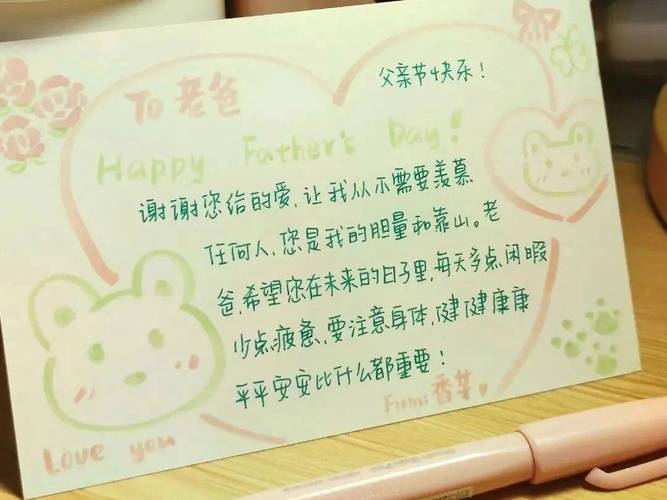 父亲节快乐！
To 老爸
Happy Father's Day！
谢谢您给的爱，让我从不需要羡慕
任何人，您是我的胆量和靠山。老
爸，希望您在未来的日子里，每天多点闲暇
少点疲惫，要注意身体，健健康康
平平安安比什么都重要！
From：香芋
Love you